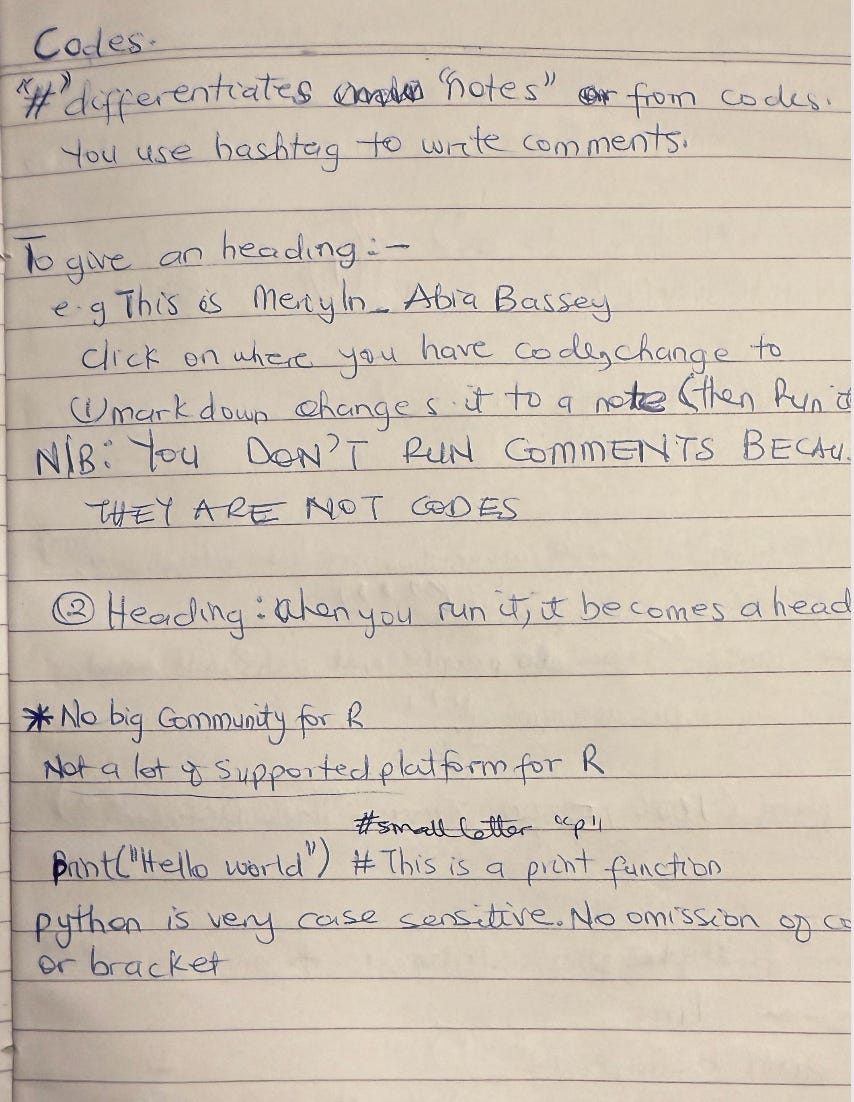 Codes.
"#" differentiates "notes" from codes.
You use hashtag to write comments.
To give an heading :-
e.g This is Merlyn_ Abia Bassey
click on where you have code, change to
(1) markdown changes it to a note (then Run it
N/B: You DON'T RUN COMMENTS BECAU
THEY ARE NOT CODES
(2) Heading : When you run it, it becomes a head
* No big Community for R
Not a lot of supported platform for R
#small letter "p"
print("Hello world") # This is a print function
python is very case sensitive. No omission of co
or bracket